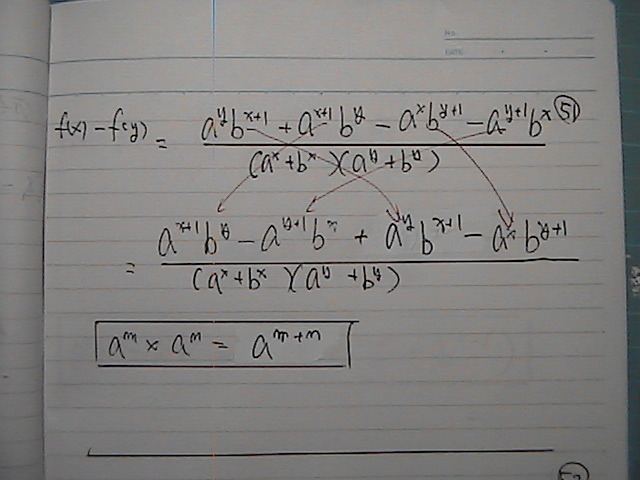 NO.
DATE
f(x) - f(y) = (a^y b^{x+1} + a^{x+1} b^y - a^x b^{y+1} - a^{y+1} b^x) / ((a^x + b^x)(a^y + b^y)) (51)
= (a^{x+1} b^y - a^{y+1} b^x + a^y b^{x+1} - a^x b^{y+1}) / ((a^x + b^x)(a^y + b^y))
a^m × a^n = a^{m+n}